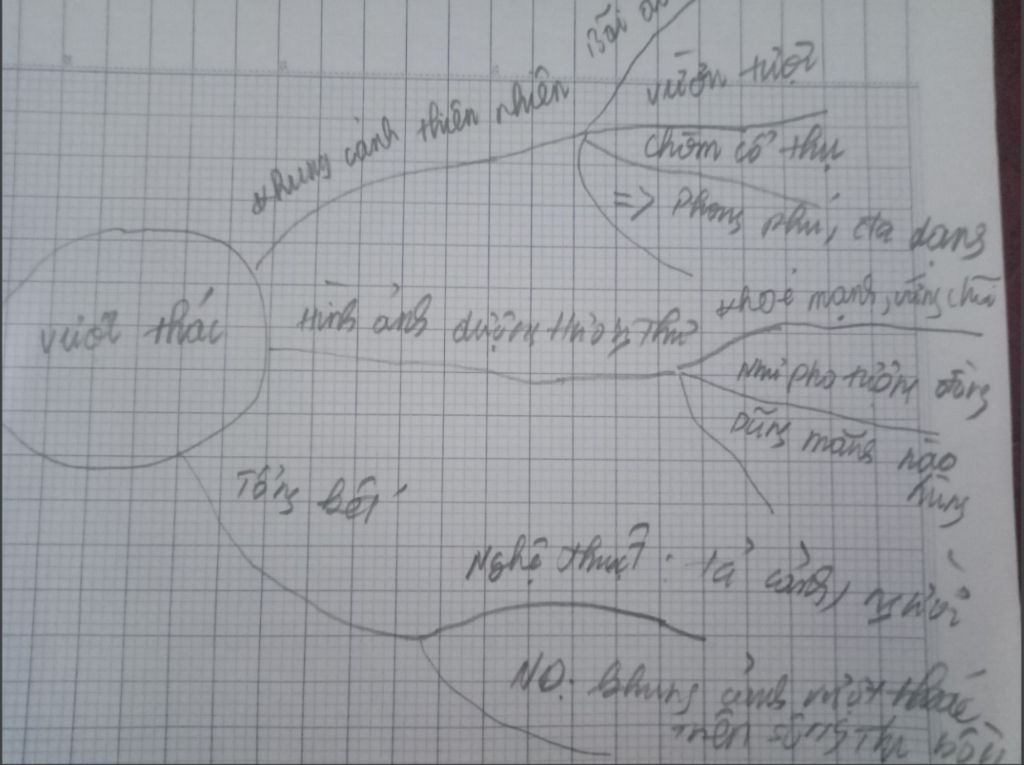 Bãi
vườn tượt
khung cảnh thiên nhiên
chòm cổ thụ
=> Phong phú, đa dạng
vượt thác
Hình ảnh dượng Hương Thư
khoẻ mạnh, vững chãi
Như pho tượng đồng
Dũng mãnh hào
hùng
Tổng kết
Nghệ thuật: tả cảnh, người
ND: khung cảnh vượt thác
trên sông Thu Bồn